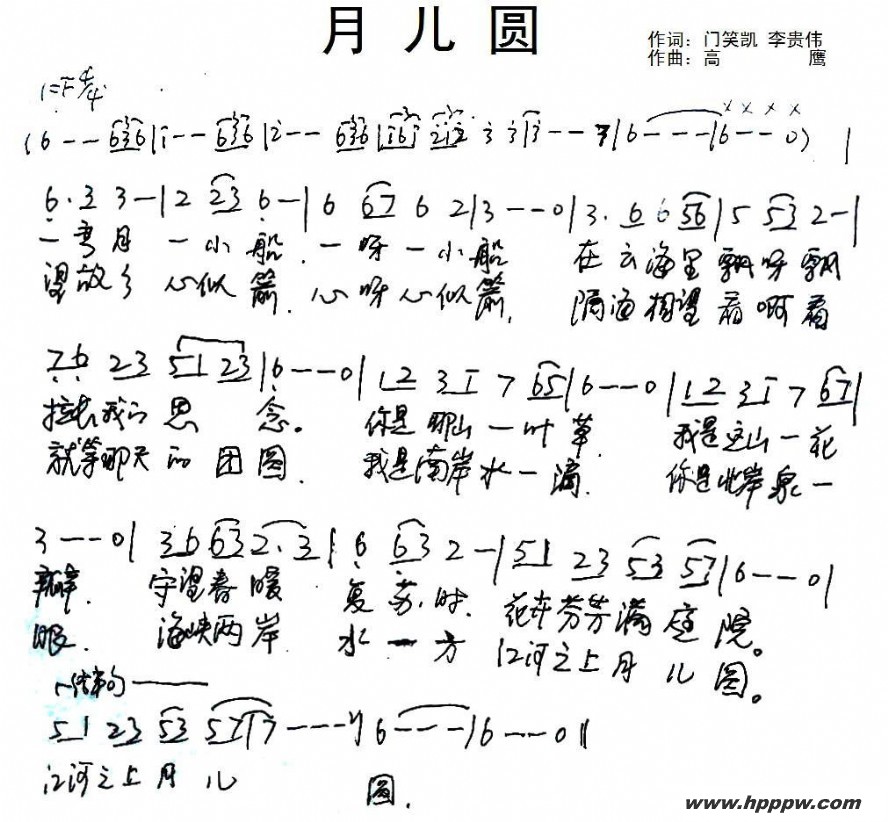 月儿圆
作词：门笑凯 李贵伟
作曲：高 鹰
1=F 4/4
(6 - - 636|i - - 636|2 - - 636|i6i 2i2 3 3|3 - - 7|6 - - -|6 - - 0) |
x x x x
6. 3 3 -|2 23 6 -|6 67 6 2|3 - - 0|3. 6 6 56|5 53 2 -|
一弯月 一小船，一呀一小船 在云海里飘呀飘
望故乡 心似箭，心呀心似箭， 隔海相望看啊看
76 23 51 23|6 - - 0|12 31 7 65|6 - - 0|12 31 7 67|
拉长我的思 念。 你是那山一叶草 我是这山一花
就等那天的团圆． 我是南岸水一滴． 你是北岸泉一
3 - - 0|36 63 2. 3|6 63 2 -|51 23 53 57|6 - - 0|
瓣． 守望春暖 复苏时． 花卉芬芳满庭院。
眼． 海峡两岸 水一方 江河之上月儿圆。
结束句
51 23 53 57|7 - - -|6 - - -|6 - - 0||
江河之上月儿 圆．
www.hpppw.com